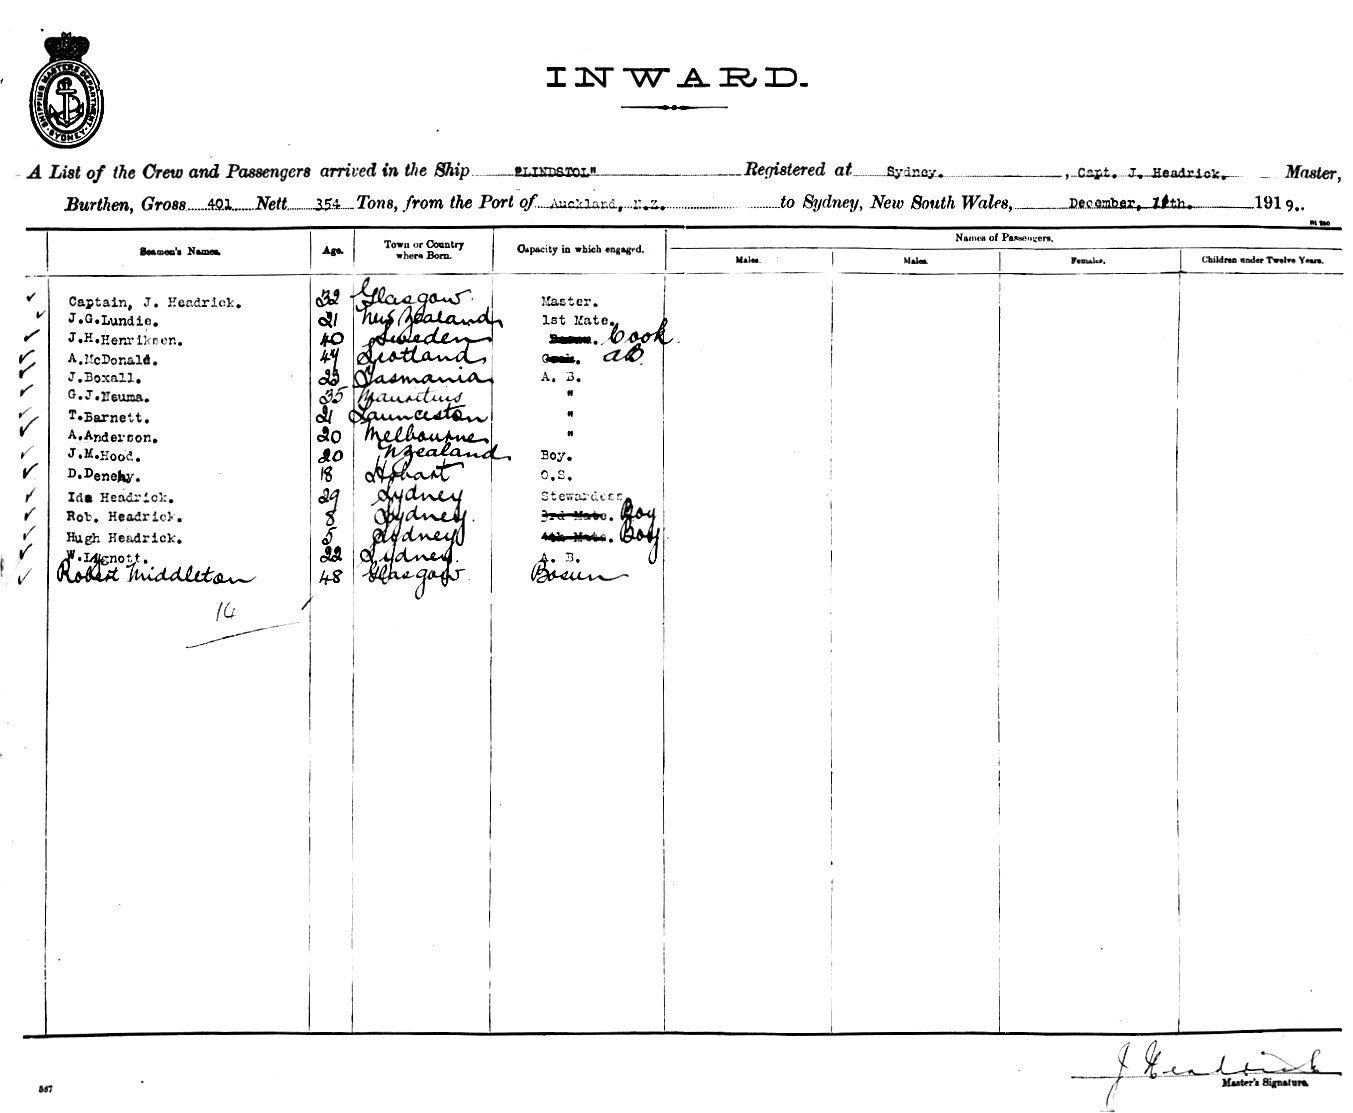 SHIPPING MASTERS DEPARTMENT
SYDNEY
INWARD.
A List of the Crew and Passengers arrived in the Ship "LINDSTOL" Registered at Sydney. , Capt. J. Headrick. Master,
Burthen, Gross 401 Nett 354 Tons, from the Port of Auckland, N.Z. to Sydney, New South Wales, December, 11th. 1919..
Names of Passengers.
Seamen's Names. Age. Town or Country where Born. Capacity in which engaged. Males. Males. Females. Children under Twelve Years.
Captain, J. Headrick. 32 Glasgow Master.
J.G.Lundie. 21 New Zealand 1st Mate.
J.H.Henriksen. 40 Sweden Cook
A.McDonald. 47 Scotland Cook. AB
J.Boxall. 23 Tasmania A. B.
G.J.Neuma. 35 Mauritius "
T.Barnett. 21 Launceston "
A.Anderson. 20 Melbourne "
J.M.Hood. 20 N Zealand Boy.
D.Denehy. 18 Hobart O.S.
Ida Headrick. 29 Sydney Stewardess
Rob. Headrick. 8 Sydney 3rd Mate. Boy
Hugh Headrick. 5 Sydney 4th Mate. Boy
W. 22 Sydney A. B.
Robert Middleton 48 Glasgow Bosun
14
J Headrick
Master's Signature.
587